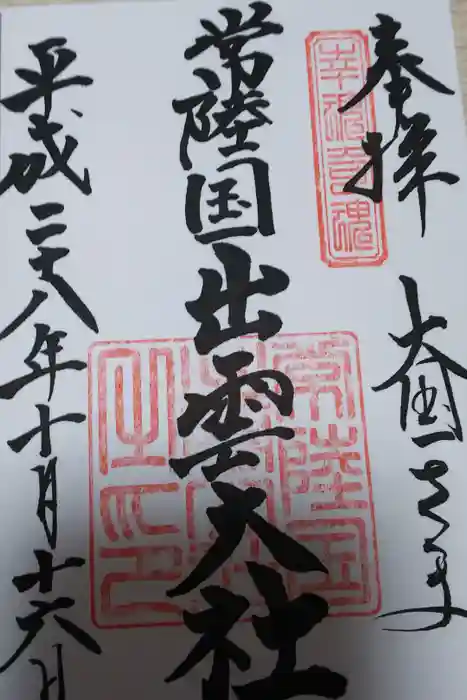 奉拝
大国さま
常陸国出雲大社
平成二十八年十月十六日
幸魂奇魂
常陸国
出雲大社
之印